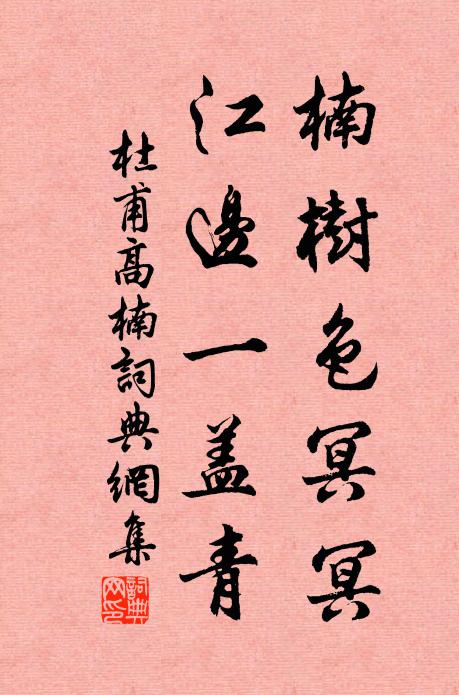 楠樹色冥冥
江邊一盖青
杜甫高楠詞典網集
詞典网印